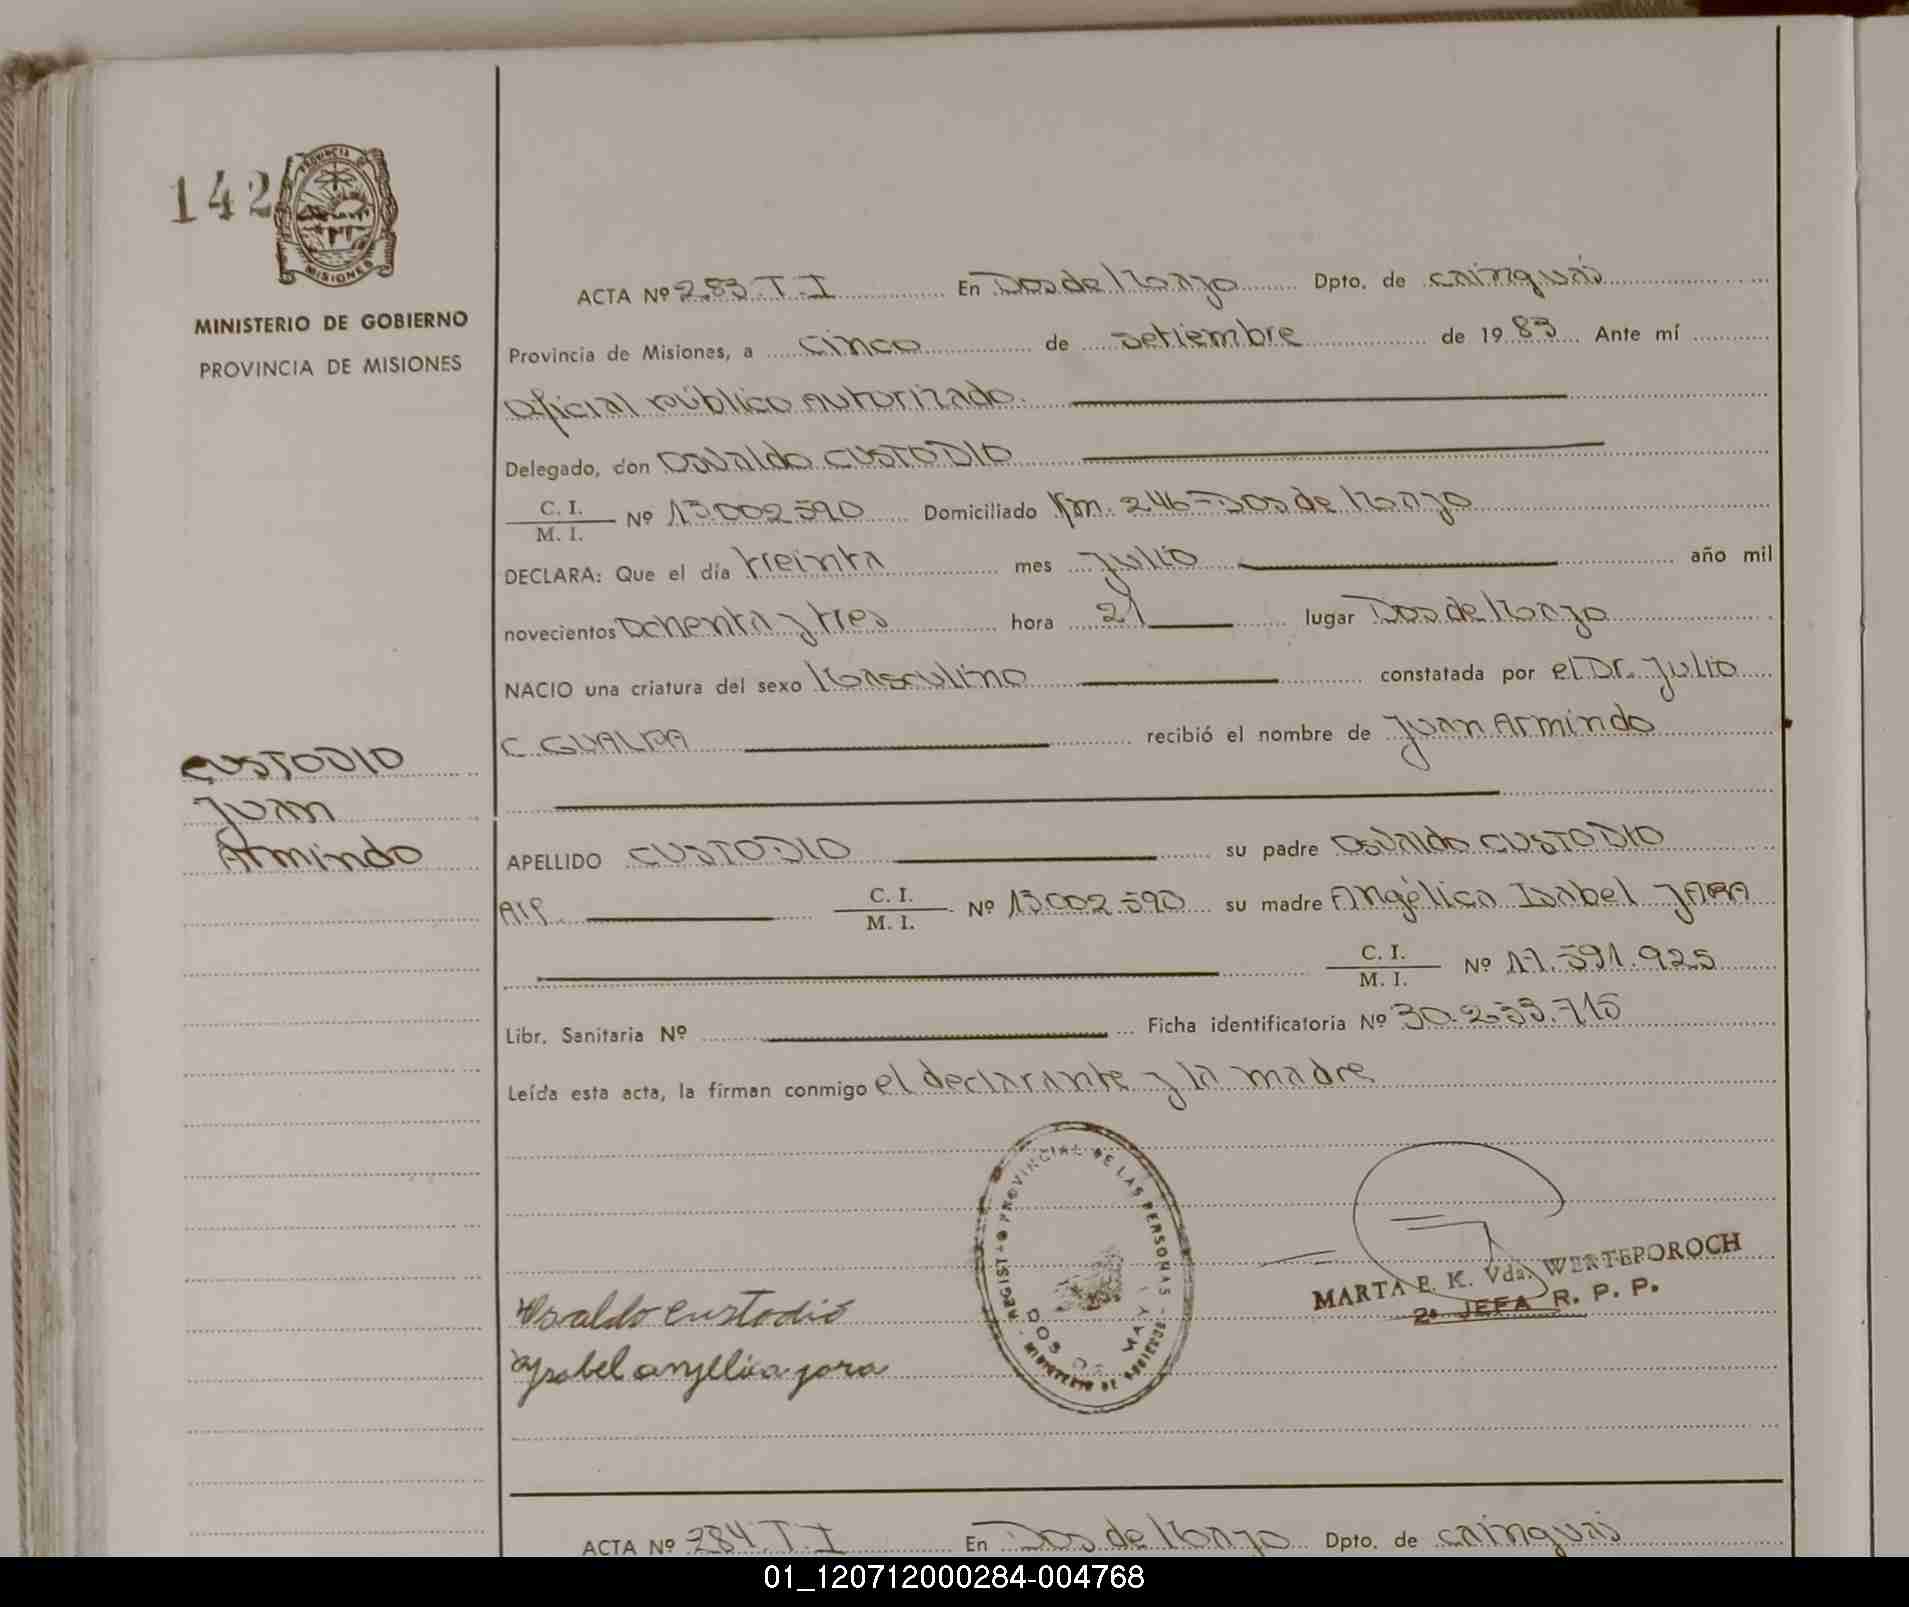 142
PROVINCIA DE
MISIONES
MINISTERIO DE GOBIERNO
PROVINCIA DE MISIONES
CUSTODIO
Juan
Armindo
ACTA Nº 283.T.I En Dos de Mayo Dpto. de cainguás
Provincia de Misiones, a cinco de setiembre de 1983 Ante mí
oficial público autorizado.
Delegado, don Osvaldo CUSTODIO
C. I.
M. I. Nº 13.002.590 Domiciliado Km. 246-Dos de Mayo
DECLARA: Que el día treinta mes julio año mil
novecientos ochenta y tres hora 21 lugar Dos de Mayo
NACIO una criatura del sexo Masculino constatada por el Dr. Julio
C. GUALPA recibió el nombre de Juan Armindo
APELLIDO CUSTODIO su padre Osvaldo CUSTODIO
Arg. C. I.
M. I. Nº 13.002.590 su madre Angélica Isabel JARA
C. I.
M. I. Nº 17.591.925
Libr. Sanitaria Nº Ficha identificatoria Nº 30.233.715
Leída esta acta, la firman conmigo el declarante y la madre
REGISTRO PROVINCIAL DE LAS PERSONAS - MINISTERIO DE GOBIERNO -
DOS DE MAYO
MARTA E. K. Vda. WERTEPOROCH
2a. JEFA R. P. P.
Osvaldo Custodio
Ysabel angelica jara
ACTA Nº 284.T.I En Dos de Mayo Dpto. de cainguás
01_120712000284-004768